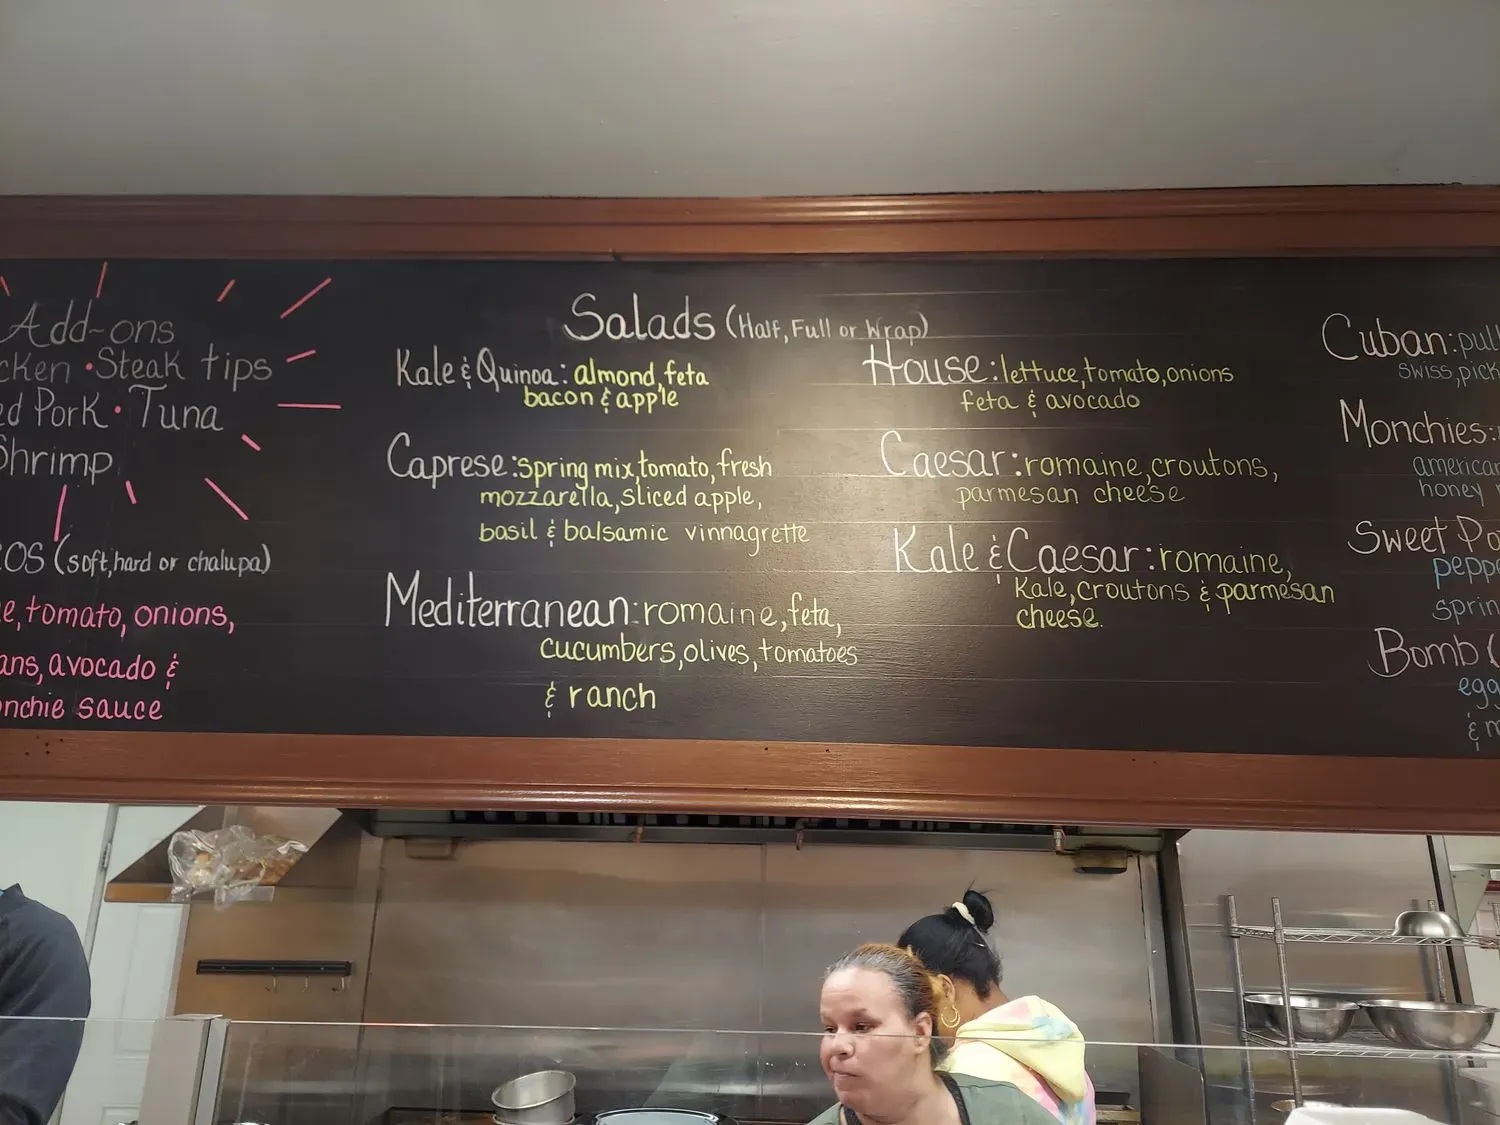 Add-ons
• Steak tips
Pork • Tuna
Shrimp
(soft, hard or chalupa)
tomato, onions,
avocado &
sauce
Salads (Half, Full or Wrap)
Kale & Quinoa: almond, feta
bacon & apple
Caprese: spring mix, tomato, fresh
mozzarella, sliced apple,
basil & balsamic vinnagrette
Mediterranean: romaine, feta,
cucumbers, olives, tomatoes
& ranch
House: lettuce, tomato, onions
feta & avocado
Caesar: romaine, croutons,
parmesan cheese
Kale & Caesar: romaine,
Kale, croutons & parmesan
cheese.
Cuban:
swiss,
Monchies:
american
honey
Sweet
Bomb (
&